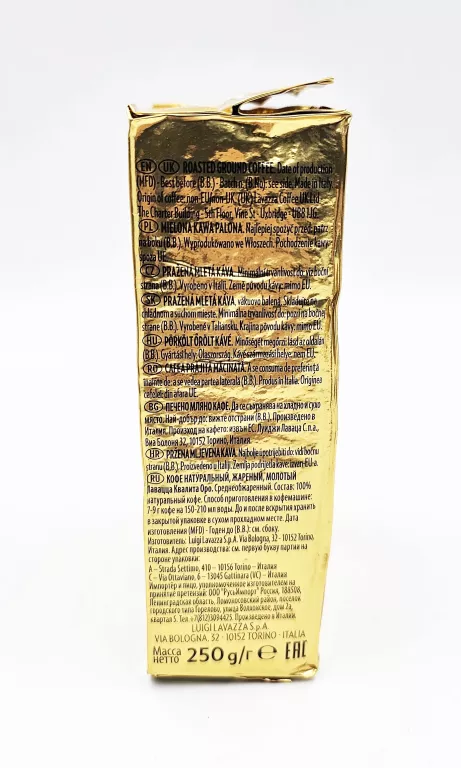 EN UK ROASTED GROUND COFFEE. Date of production
(MFD) - Best before (B.B.) - Batch n. (B.No): see side. Made in Italy.
Origin of coffee: non-EU/non-UK. (UK) Lavazza Coffee UK Ltd
The Charter Building - 5th Floor, Vine St - Uxbridge - UB8 1JG.
PL MIELONA KAWA PALONA. Najlepiej spożyć przed: patrz
na boku (B.B.). Wyprodukowano we Włoszech. Pochodzenie kawy:
spoza UE.
CZ PRAŽENÁ MLETÁ KÁVA. Minimální trvanlivost do: viz boční
strana (B.B.). Vyrobeno v Itálii. Země původu kávy: mimo EU.
SK PRAŽENÁ MLETÁ KÁVA, vákuovo balená. Skladujte na
chladnom a suchom mieste. Minimálna trvanlivosť do: pozri na bočnej
strane (B.B.). Vyrobené v Taliansku. Krajina pôvodu kávy: mimo EÚ.
HU PÖRKÖLT ŐRÖLT KÁVÉ. Minőségét megőrzi: lásd az oldalán
(B.B.). Gyártási hely: Olaszország. Kávé származási helye: nem EU-
RO CAFEA PRĂJITĂ MĂCINATĂ. A se consuma de preferință
înainte de: a se vedea partea laterală (B.B.). Produs în Italia. Originea
cafelei: din afara UE.
BG ПЕЧЕНО МЛЯНО КАФЕ. Да се съхранява на хладно и сухо
място. Най-добър до: вижте отстрани (B.B.). Произведено в
Италия. Произход на кафето: извън ЕС. Луиджи Лаваца С.п.а.,
Виа Болоня 32, 10152 Торино, Италия.
HR PRŽENA MLJEVENA KAVA. Najbolje upotrijebiti do: vidi bočnu
stranu (B.B.). Proizvedeno u Italiji. Zemlja podrijetla kave: izvan EU-a.
RU КОФЕ НАТУРАЛЬНЫЙ, ЖАРЕНЫЙ, МОЛОТЫЙ
Лавацца Квалита Оро. Среднеобжаренный. Состав: 100%
натуральный кофе. Способ приготовления в кофемашине:
7-9 г кофе на 150-210 мл воды. До и после вскрытия хранить
в закрытой упаковке в сухом прохладном месте. Дата
изготовления (MFD) - Годен до (B.B.): см. сбоку.
Изготовитель: Luigi Lavazza S.p.A. Via Bologna, 32 - 10152 Torino,
Италия. Адрес производства: см. первую букву партии на
стороне упаковки:
A – Strada Settimo, 410 – 10156 Torino – Италия
C – Via Ottaviano, 6 – 13045 Gattinara (VC) – Италия
Импортёр и лицо, уполномоченное изготовителем на
принятие претензий: ООО "РусьИмпорт" Россия, 188508,
Ленинградская область, Ломоносовский район, поселок
городского типа Горелово, улица Волхонское, дом 2а,
квартал 5. Тел +7(812)3094425. Произведено в Италии.
LUIGI LAVAZZA S.p.A.
VIA BOLOGNA, 32 - 10152 TORINO - ITALIA
Масса
нетто 250 g/г e EAC